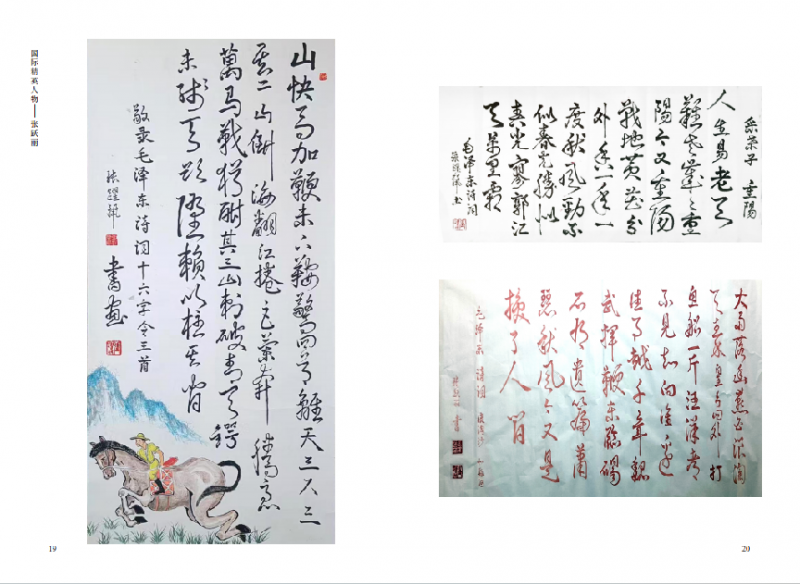 国际精英人物——张跃丽
山快马加鞭未下鞍驚回首離天三尺三
其二山倒海翻江捲巨澜奔腾急
萬马战犹酣其三山刺破青天锷
未残天欲墮赖以柱其间
敬录毛泽东诗词十六字令三首
書画
采桑子 重陽
人生易老天
難老歲歲重
陽今又重陽
戰地黄花分
外香一年一
度秋風勁不
似春光勝似
春光寥郭江
天萬里霜
毛泽东诗词
大雨落幽燕白浪滔
天秦皇岛外打
鱼船一片汪洋都
不見知向誰边
往事越千年魏
武揮鞭东臨碣
石有遗篇萧
瑟秋風今又是
换了人间
毛泽东诗词
19
20